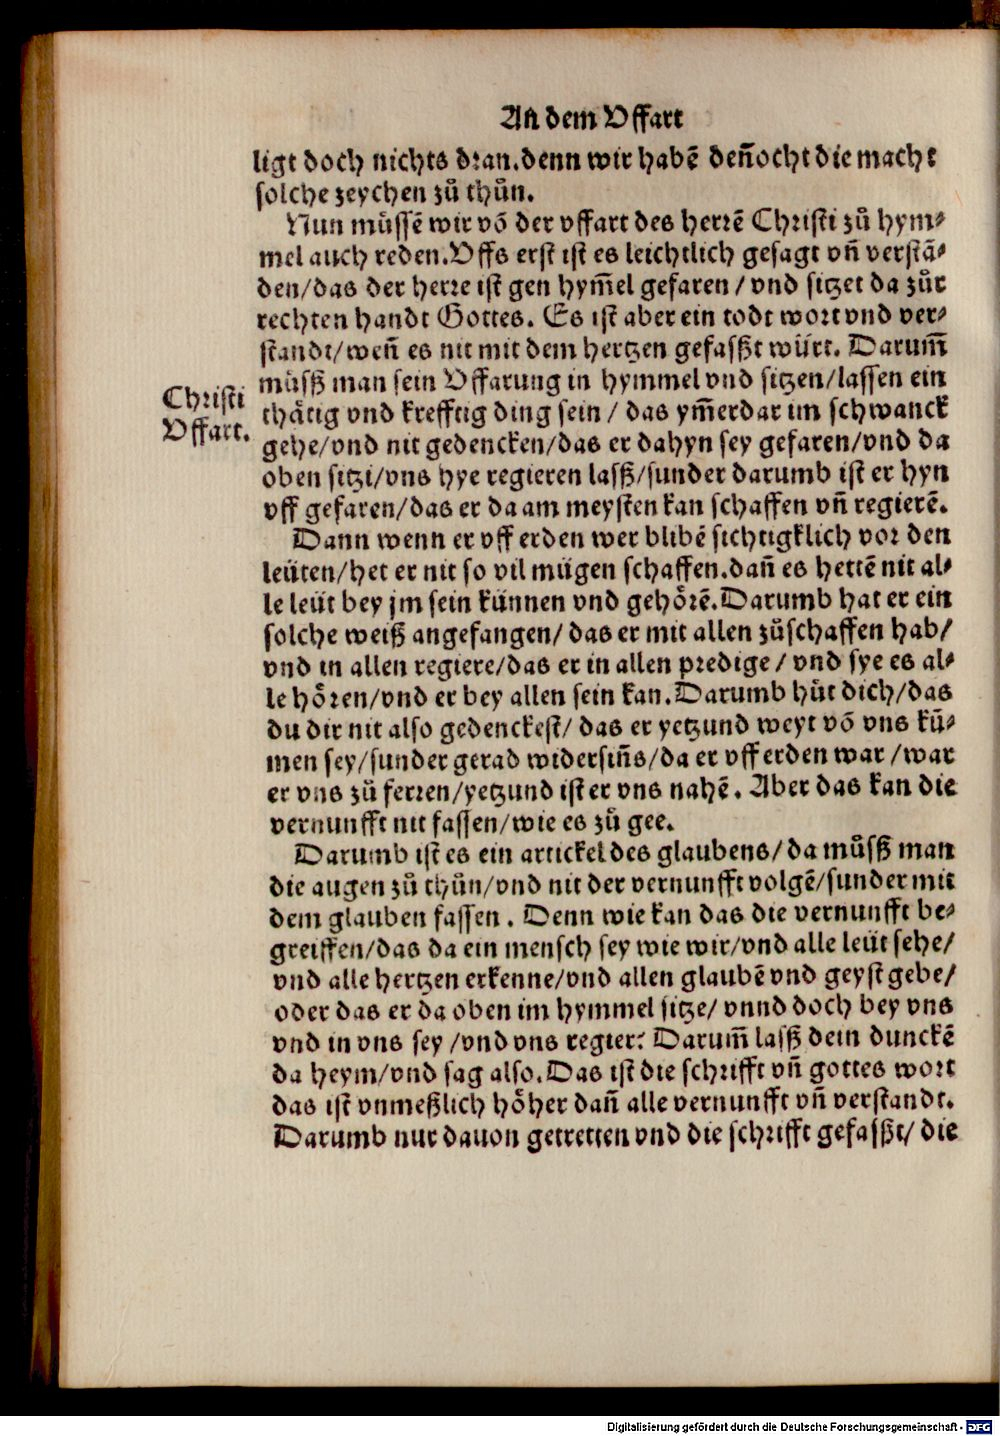 An dem Uffart
ligt doch nichts dran. denn wir habē deñocht die macht
solche zeychen zů thůn.
Nun müssē wir vō der vffart des herrē Christi zů hym⸗
mel auch reden. Uffs erst ist es leichtlich gesagt vñ verstā⸗
den/das der herre ist gen hym̄el gefaren/vnd sitzet da zůr
rechten handt Gottes. Es ist aber ein todt wort vnd ver⸗
standt/weñ es nit mit dem hertzen gefaßt würt. Darum̄
můß man sein Uffarung in hymmel vnd sitzen/lassen ein
Christi
Uffart.
thätig vnd krefftig ding sein/ das ym̄erdar im schwanck
gehe/vnd nit gedencken/das er dahyn sey gefaren/vnd da
oben sitzi/vns hye regieren laß/sunder darumb ist er hyn
vff gefaren/das er da am meysten kan schaffen vñ regierē.
Dann wenn er vff erden wer blibē sichtigklich vor den
leüten/het er nit so vil mügen schaffen. dañ es hettē nit al⸗
le leüt bey jm sein künnen vnd gehörē. Darumb hat er ein
solche weiß angefangen/ das er mit allen zůschaffen hab/
vnd in allen regiere/das er in allen predige/ vnd sye es al⸗
le hören/vnd er bey allen sein kan. Darumb hüt dich/das
du dir nit also gedenckest/ das er yetzund weyt vō vns kū⸗
men sey/sunder gerad widersiñs/da er vff erden war/war
er vns zů ferren/yetzund ist er vns nahē. Aber das kan die
vernunfft nit fassen/wie es zů gee.
Darumb ist es ein artickel des glaubens/da můß man
die augen zů thůn/vnd nit der vernunfft volgē/sunder mit
dem glauben fassen. Denn wie kan das die vernunfft be⸗
greiffen/das da ein mensch sey wie wir/vnd alle leüt sehe/
vnd alle hertzen erkenne/vnd allen glaubē vnd geyst gebe/
oder das er da oben im hymmel sitze/ vnnd doch bey vns
vnd in vns sey/vnd vns regier? Darum̄ laß dein dunckē
da heym/vnd sag also. Das ist die schrifft vñ gottes wort
das ist vnmeßlich höher dañ alle vernunfft vñ verstandt.
Darumb nur dauon getretten vnd die schrifft gefaßt/ die
Digitalisierung gefördert durch die Deutsche Forschungsgemeinschaft - DFG